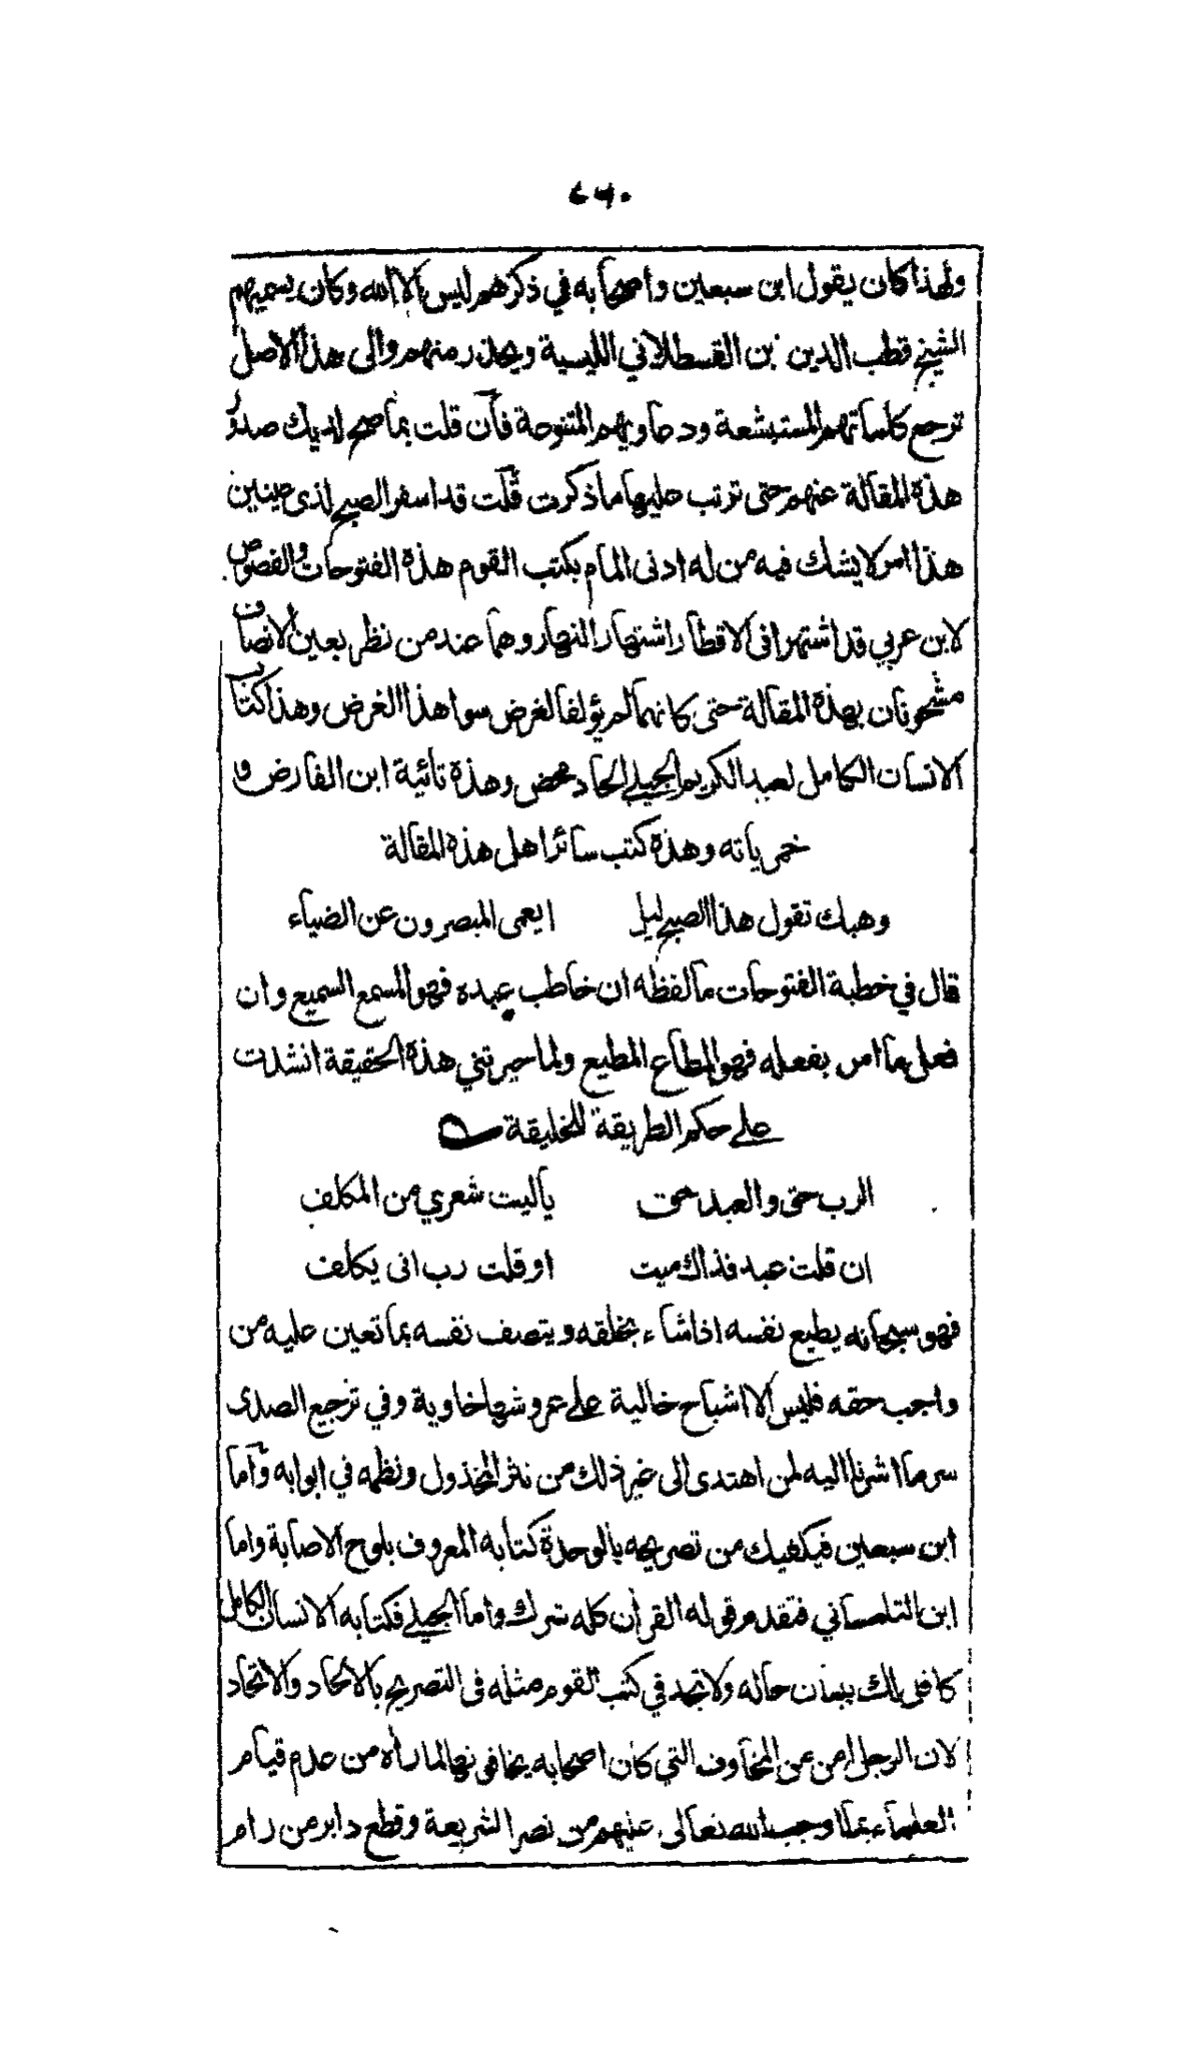 ٢٦٠
ولهذا كان يقول ابن سبعين واصحابه في ذكرهم ليس الا الله وكان يسميهم
الشيخ قطب الدين بن القسطلاني الليسية ويحذر منهم والى هذا الاصل
ترجع كلماتهم المستبشعة ودعاويهم المتنوعة فان قلت بما صح لديك صدور
هذه المقالة عنهم حتى ترتب عليها ما ذكرت قلت قد اسفر الصبح لذى عينين
هذا امر لا يشك فيه من له ادنى المام بكتب القوم هذه الفتوحات والفصوص
لابن عربي قد اشتهرا فى الاقطار اشتهار النهار وهما عند من نظر بعين الانصاف
مشحونان بهذه المقالة حتى كانهما لم يؤلفا لغرض سوا هذا الغرض وهذا كتاب
الانسان الكامل لعبد الكريم الجيلي الحاد محض وهذه تائية ابن الفارض و
خمرياته وهذه كتب سائر اهل هذه المقالة
وهبك تقول هذا الصبح ليل ايعمى المبصرون عن الضياء
قال في خطبة الفتوحات ما لفظه ان خاطب عبده فهو المسمع السميع وان
فعل ما امر بفعله فهو المطاع المطيع ولما حيرتني هذه الحقيقة انشدت
على حكم الطريقة للخليقة
الرب حق والعبد حق ياليت شعري من المكلف
ان قلت عبد فذاك ميت او قلت رب انى يكلف
فهو سبحانه يطيع نفسه اذا شاء بخلقه ويتصف نفسه بما تعين عليه من
واجب حقه فليس الا اشباح خالية على عروشها خاوية وفي ترجيع الصدى
سر ما اشرنا اليه لمن اهتدى الى غير ذلك من نثر المخذول ونظمه في ابوابه واما
ابن سبعين فيكفيك من تصريحه بالوحدة كتابه المعروف بلوح الاصابة واما
ابن التلمساني فتقدم قوله القرأن كله شرك واما الجيلي فكتابه الانسان الكامل
كافل لك ببيان حاله ولا تجد في كتب القوم مثله فى التصريح بالالحاد والاتحاد
لان الرجل امن من المخاوف التي كان اصحابه يخافونها لما رأه من عدم قيام
العلماء بما اوجب الله تعالى عليهم من نصر الشريعة وقطع دابر من رام